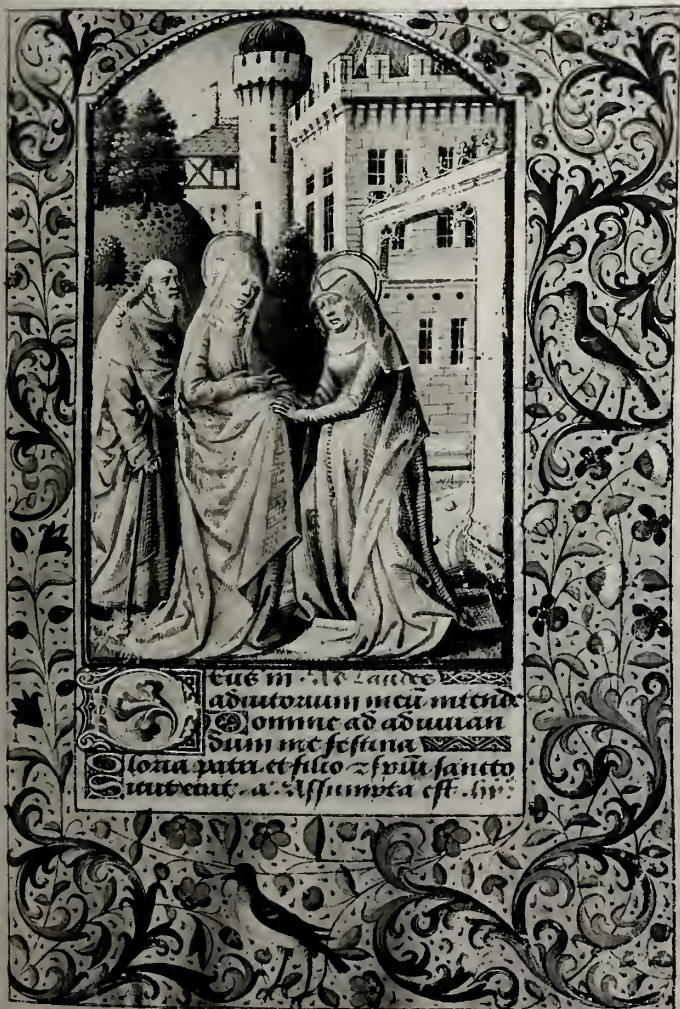 Deus in · Ad Laudes
adiutorium meū intende
Domine ad adiuuan
dum me festina
Gloria patri et filio ⁊ sp̄ui sancto
Sicut erat. a. Assumpta est.